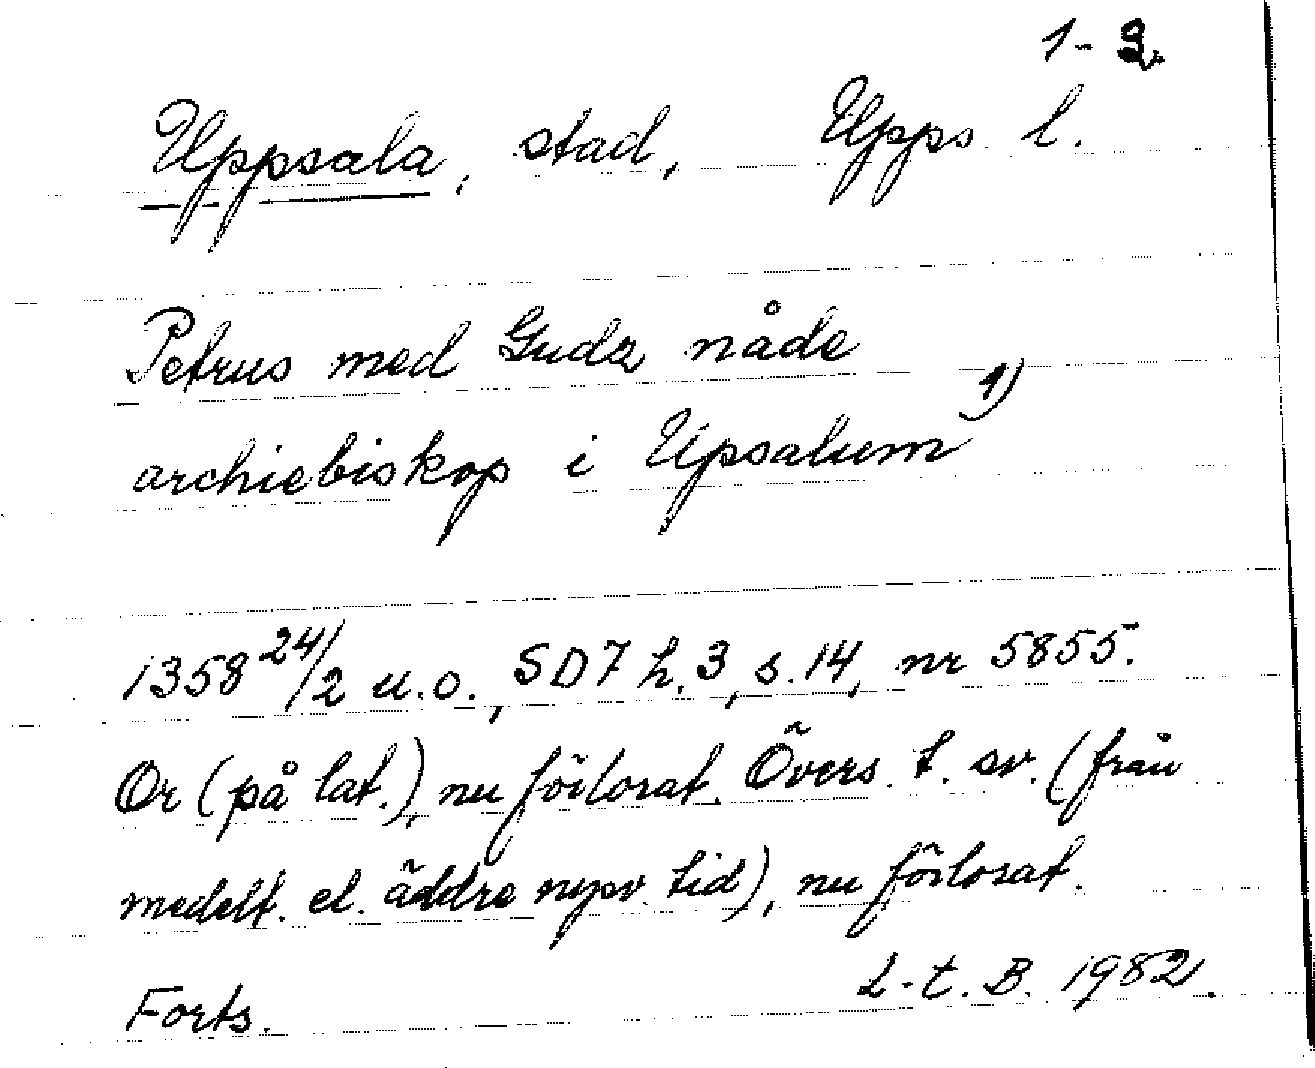 1-2.
Uppsala, stad, Upps l.
Petrus med Gudz nåde
archiebiskop i Upsalum 1)
1358 24/2 u.o., SD7 h.3, s.14, nr 5855.
Or (på lat.), nu förlorat. Övers. t. sv. (från
medelt. el. äldre nysv. tid), nu förlorat.
Forts. L-t. B. 1982.